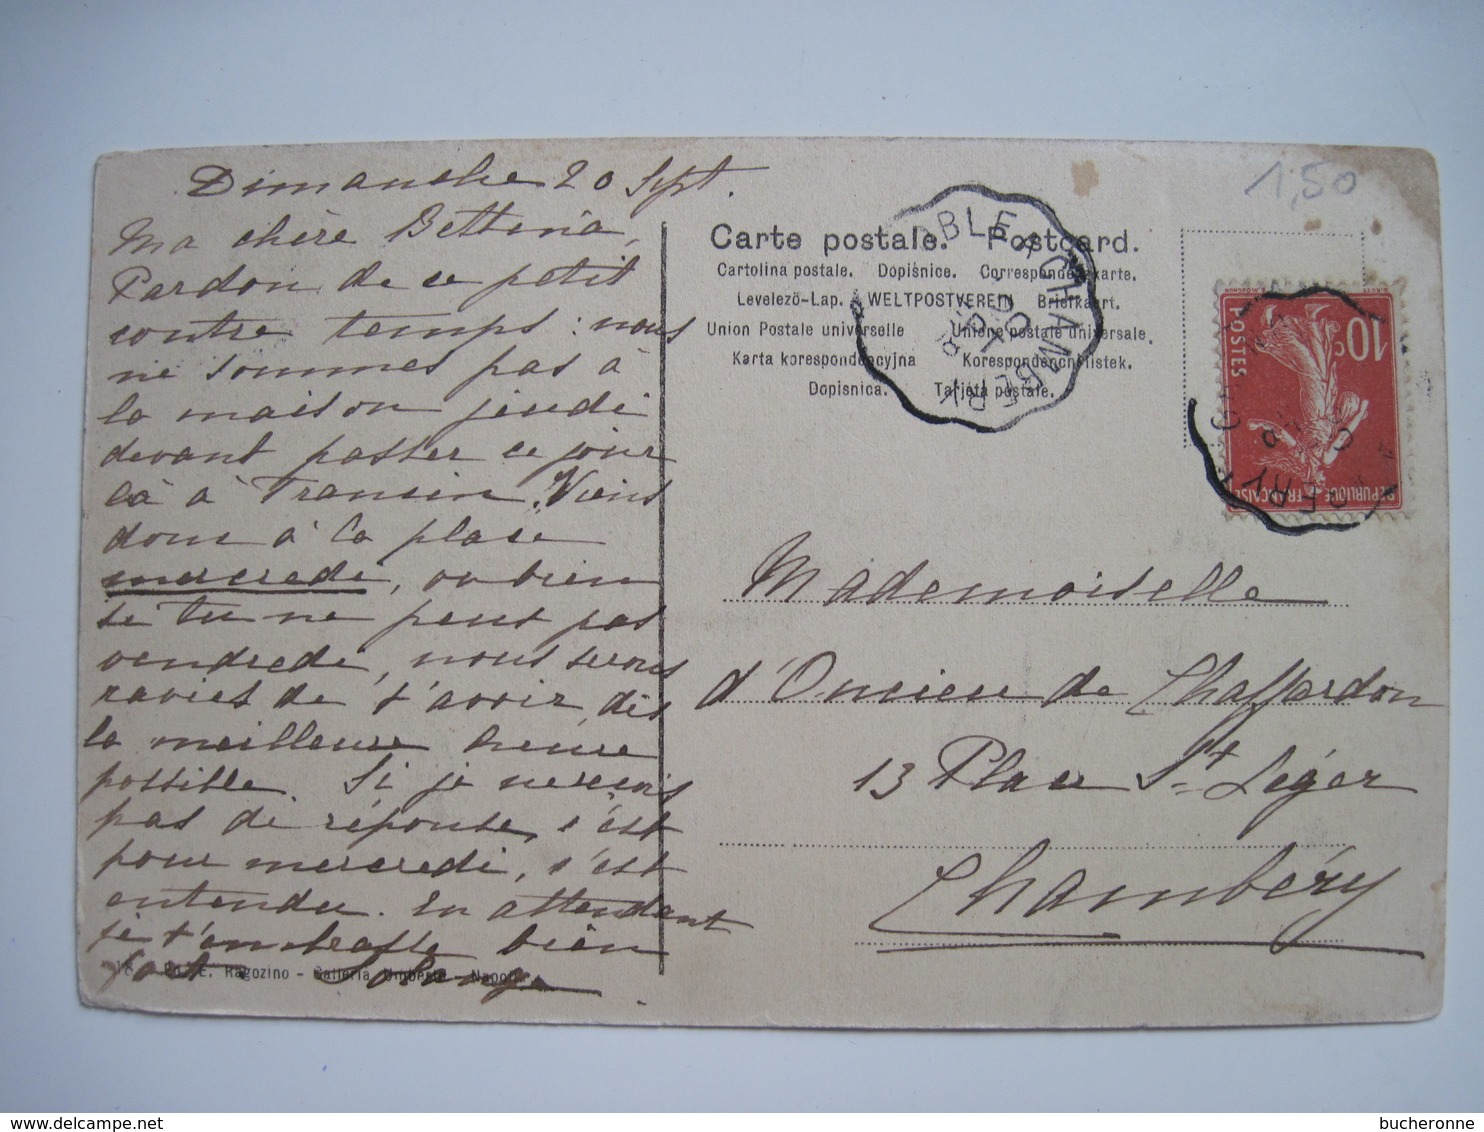 Dimanche 20 Sept.
Ma chère Bettina,
Pardon de ce petit
contre temps : nous
ne sommes pas à
la maison jeudi
devant passer ce jour
là à Transin. Viens
donc à la place
mercredi, ou bien
si tu ne peux pas
vendredi, nous serons
ravies de t'avoir dès
la meilleure heure
possible. Si je ne reçois
pas de réponse, c'est
pour mercredi, c'est
entendu. En attendant
je t'embrasse bien
fort. Solange
18 Ed. E. Ragozino - Galleria Umberto - Napoli
1,50
Carte postale. Postcard.
Cartolina postale. Dopiśnice. Correspondenzkarte.
Levelező-Lap. WELTPOSTVEREIN Briefkaart.
Union Postale universelle Unione postale universale.
Karta korespondencyjna Korespondenčnílistek.
Dopisnica. Tarjeta postale.
10c
POSTES
REPUBLIQUE FRANÇAISE
Mademoiselle
d'Oncieu de Chaffardon
13 Place St Léger
Chambéry
bucheronne